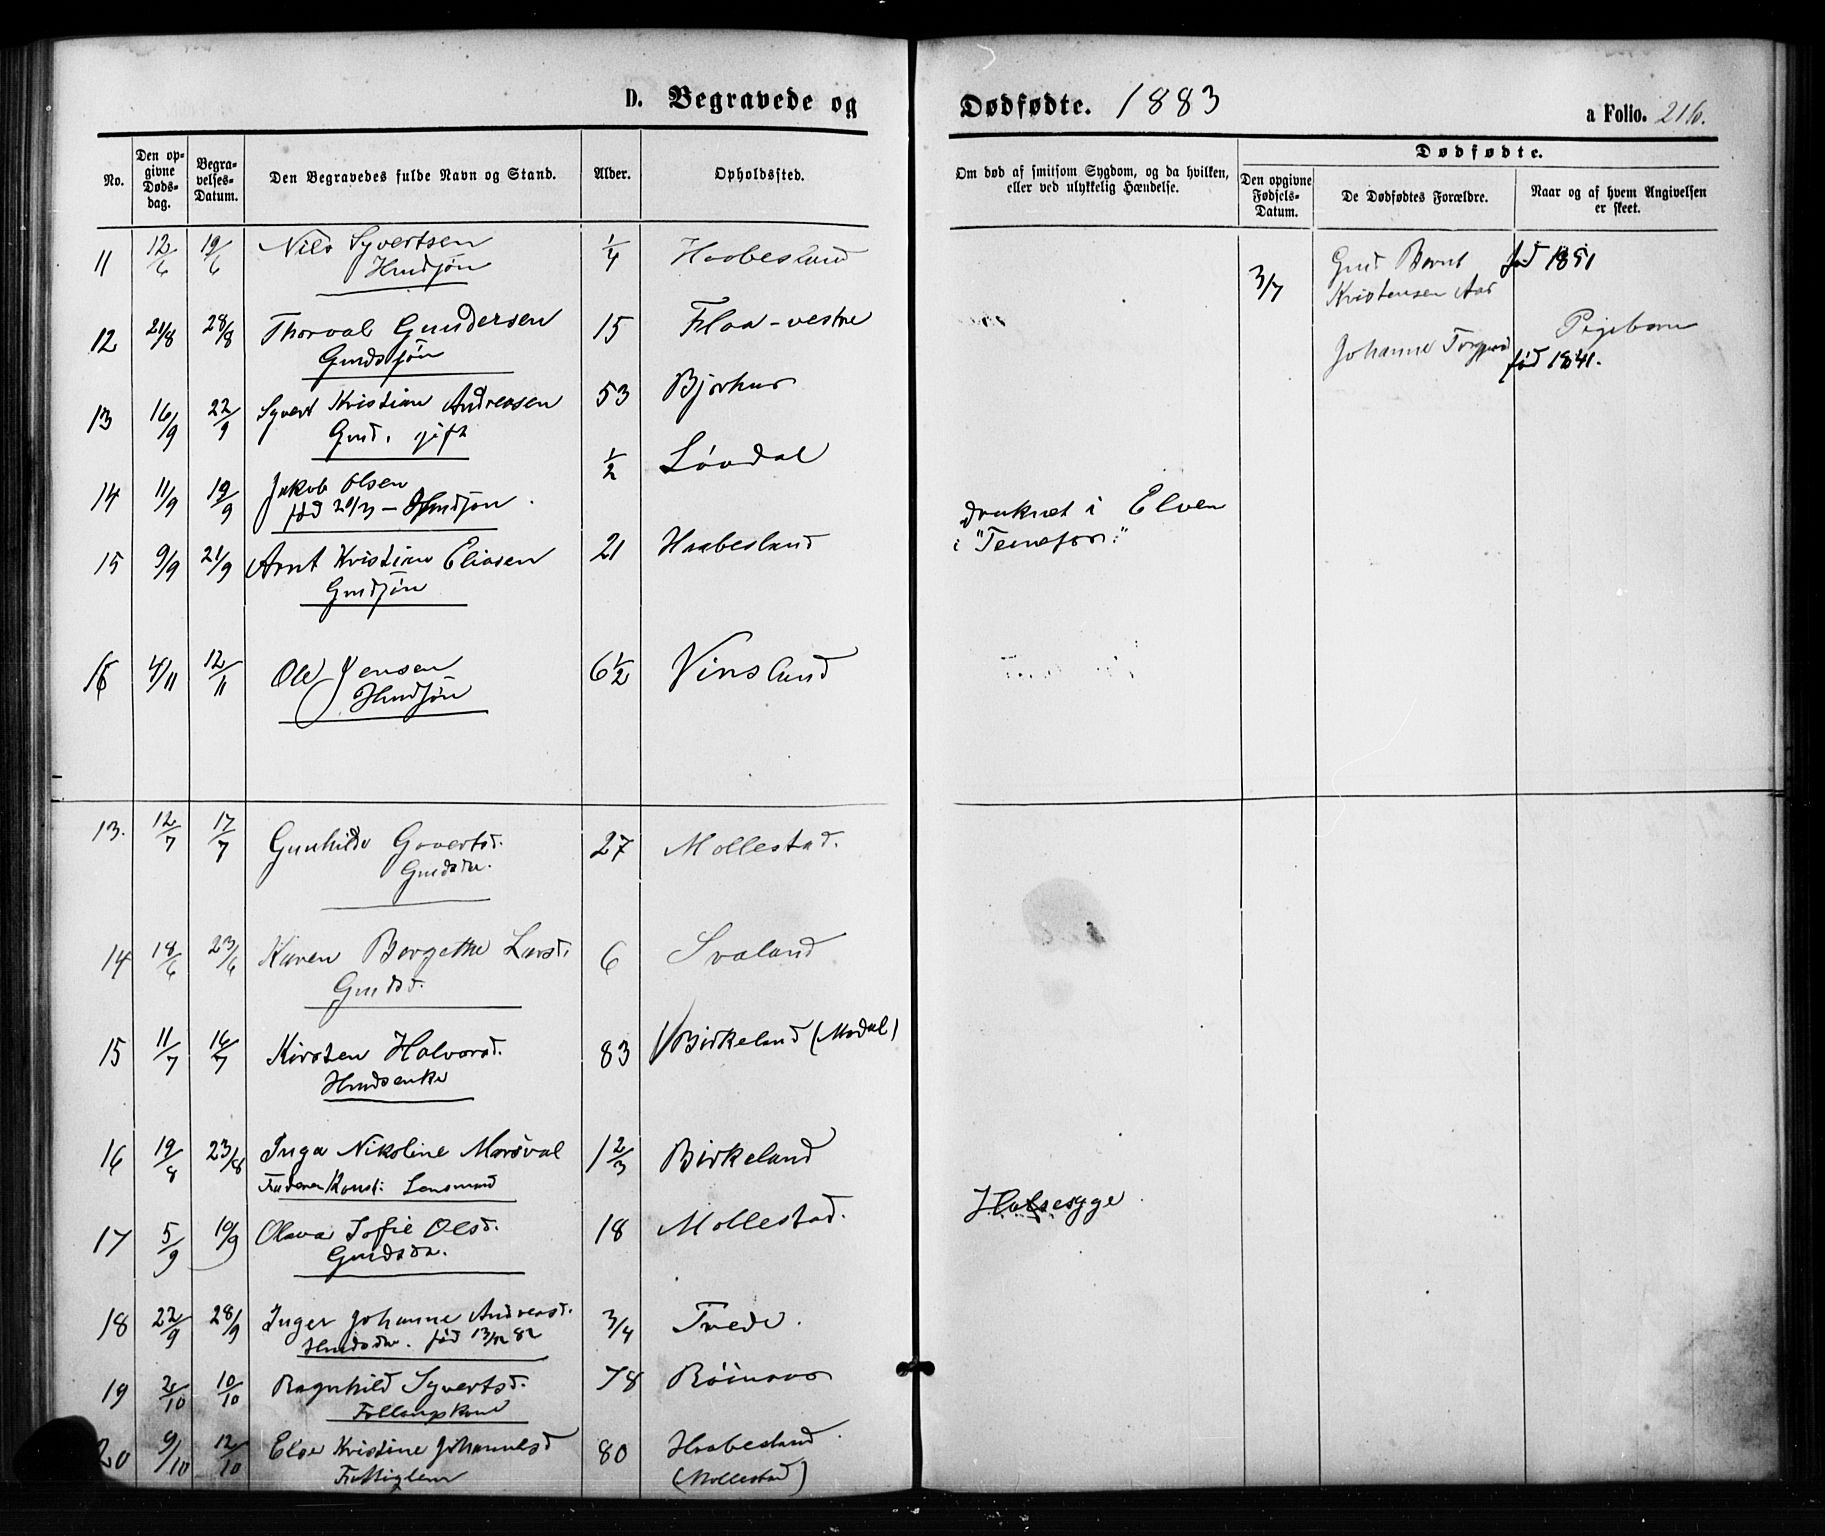 D. Begravede og
No.
Den op-
givne
Døds-
dag.
Begra-
velses-
Datum.
Den Begravedes fulde Navn og Stand.
Alder.
Opholdssted.
11 12/6 19/6 Nils Syvertsen 1/4 Haabesland
Hmdsjøn
12 21/8 28/8 Thorval Gundersen 15 Flaa-vestre
Gmdssjøn
13 16/9 22/9 Syvert Kristian Andreasen 53 Bjorhus
Gmd. gift
14 11/9 19/9 Jakob Olsen 1/2 Løvdal
fød 20/3 – Hmdsjøn
15 9/9 21/9 Arnt Kristian Eliasen 21 Haabesland
Gmdsjøn
16 4/11 12/11 Ole Jensen 6 1/2 Vinsland
Hmdsjøn
13. 12/7 17/7 Gunhilde Govertsd. 27 Mollestad.
Gmdsdtr.
14 18/6 23/6 Karen Borgethe Larsd. 6 Svaland
Gmdsd.
15 11/7 16/7 Kirsten Halvorsd. 83 Birkeland (Modal)
Hmdsenke
16 19/8 23/8 Inga Nikoline Morsval 1 2/3 Birkeland
Faderen Konst: Lensmand
17 5/9 10/9 Olava Sofie Olsd. 18 Mollestad.
Gmdsda.
18 22/9 28/9 Inger Johanne Andreasd. 3/4 Tvede.
Hmdsdtr. fød 13/12 82
19 2/10 10/10 Ragnhild Syvertsd. 78 Røinaas
Follaugskone
20 9/10 12/10 Else Kristine Johannesd 80 Haabesland
Fattiglem (Mollestad)
Dødfødte. 1883
a Folio. 216.
Om død af smitsom Sygdom, og da hvilken,
eller ved ulykkelig Hændelse.
Dødfødte.
Den opgivne
Fødsels-
Datum.
De Dødfødtes Forældre.
Naar og af hvem Angivelsen
er skeet.
3/7 Gmd Bernt fød 1851
Kristensen Aas
Pigebarn
Johanne fød 1841.
druknet i Elven
i
Halsesyge